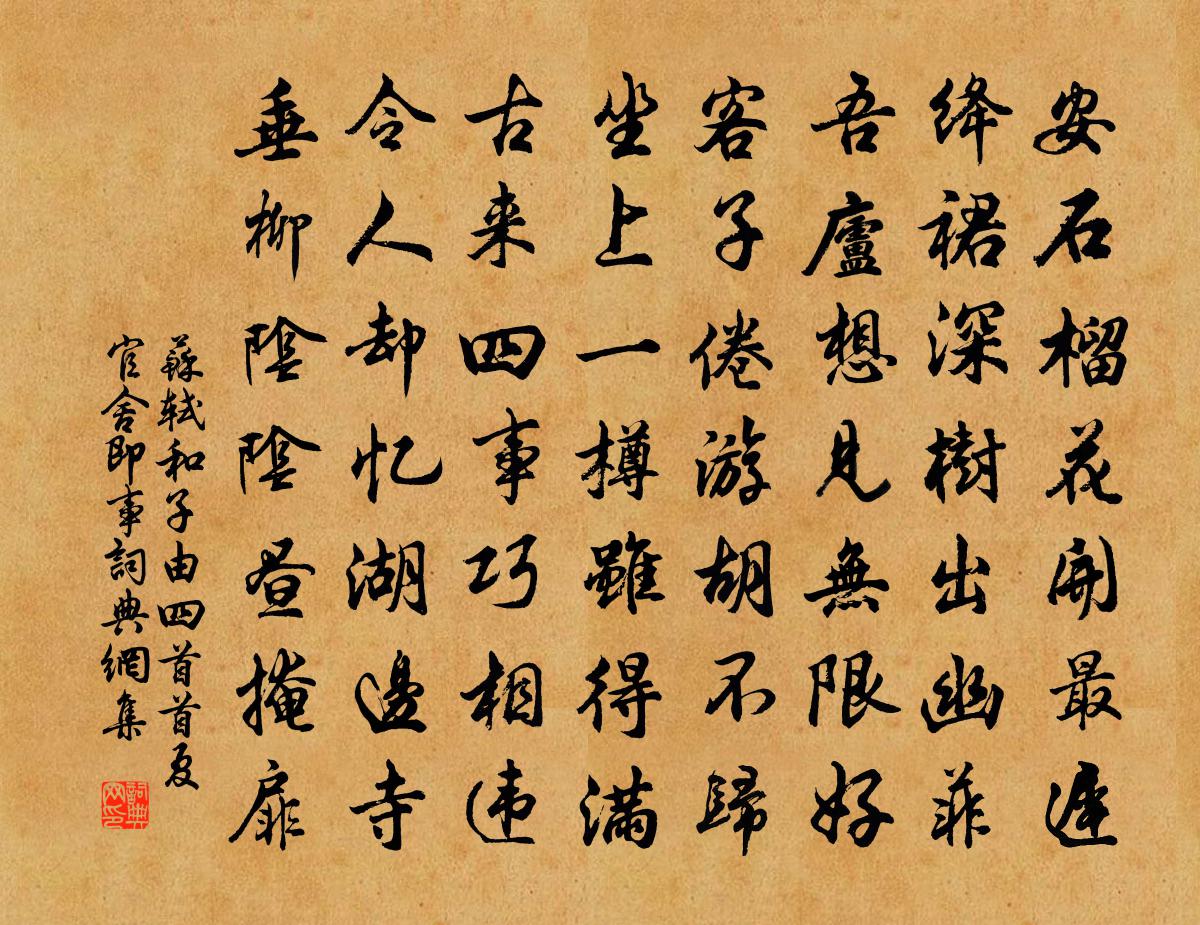 安石榴花開最遲
絳裙深樹出幽菲
吾廬想見無限好
客子倦游胡不歸
坐上一樽雖得滿
古来四事巧相违
令人却忆湖邊寺
垂柳陰陰昼掩扉
蘇軾和子由四首首夏
官舍即事詞典網集
詞典
网印